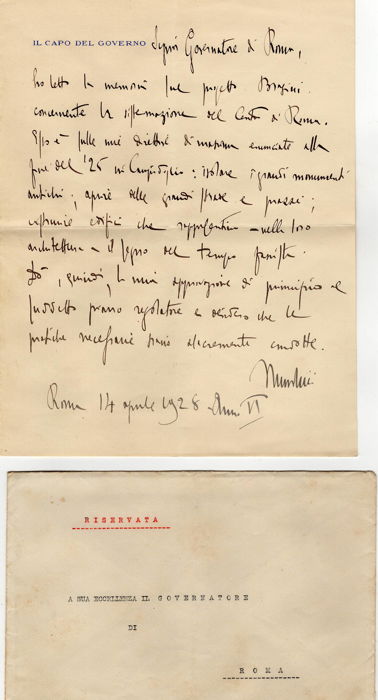 IL CAPO DEL GOVERNO Signor Governatore di Roma,
ho letto la memoria sul progetto Brasini
concernente la sistemazione del Centro di Roma.
Esso è sulle mie direttive di massima enunciate alla
fine del '25 in Campidoglio: isolare i grandi monumenti
antichi; aprire delle grandi strade e piazze;
costruire edifici che rappresentino - nella loro
architettura - il segno del tempo fascista.
Dò, quindi, la mia approvazione di principio al
suddetto piano regolatore e desidero che le
pratiche necessarie siano alacremente condotte.
Mussolini
Roma 14 aprile 1928 Anno VI
RISERVATA
A SUA ECCELLENZA IL GOVERNATORE
DI
ROMA